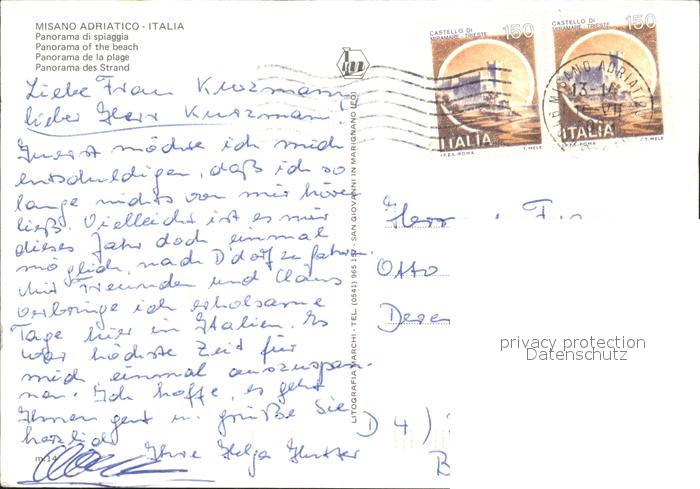 MISANO ADRIATICO - ITALIA
Panorama di spiaggia
Panorama of the beach
Panorama de la plage
Panorama des Strand
Liebe Frau Kurzmann,
lieber Herr Kurzmann!
Zuerst möchte ich mich
entschuldigen, daß ich so
lange nichts von mir hören
ließ. Vielleicht ist es mir
dieses Jahr doch einmal
möglich, nach D'dorf zu fahren.
Mit Freunden und Claus
verbringe ich erholsame
Tage hier in Italien. Es
war höchste Zeit für
mich, einmal auszuspan-
nen. Ich hoffe, es geht
Ihnen gut u. grüße Sie
herzlich
Ihre Helga
m.14
LITOGRAFIA MARCHI - TEL. (0541) 965 157 - SAN GIOVANNI IN MARIGNANO (FO)
CASTELLO DI
MIRAMARE - TRIESTE
150
ITALIA
I.P.Z.S. - ROMA
T. MELE
CASTELLO DI
MIRAMARE - TRIESTE
150
ITALIA
I.P.Z.S. - ROMA
T. MELE
MISANO ADRIATICO
13-14
Herr
Otto
D 4)
B
privacy protection
Datenschutz